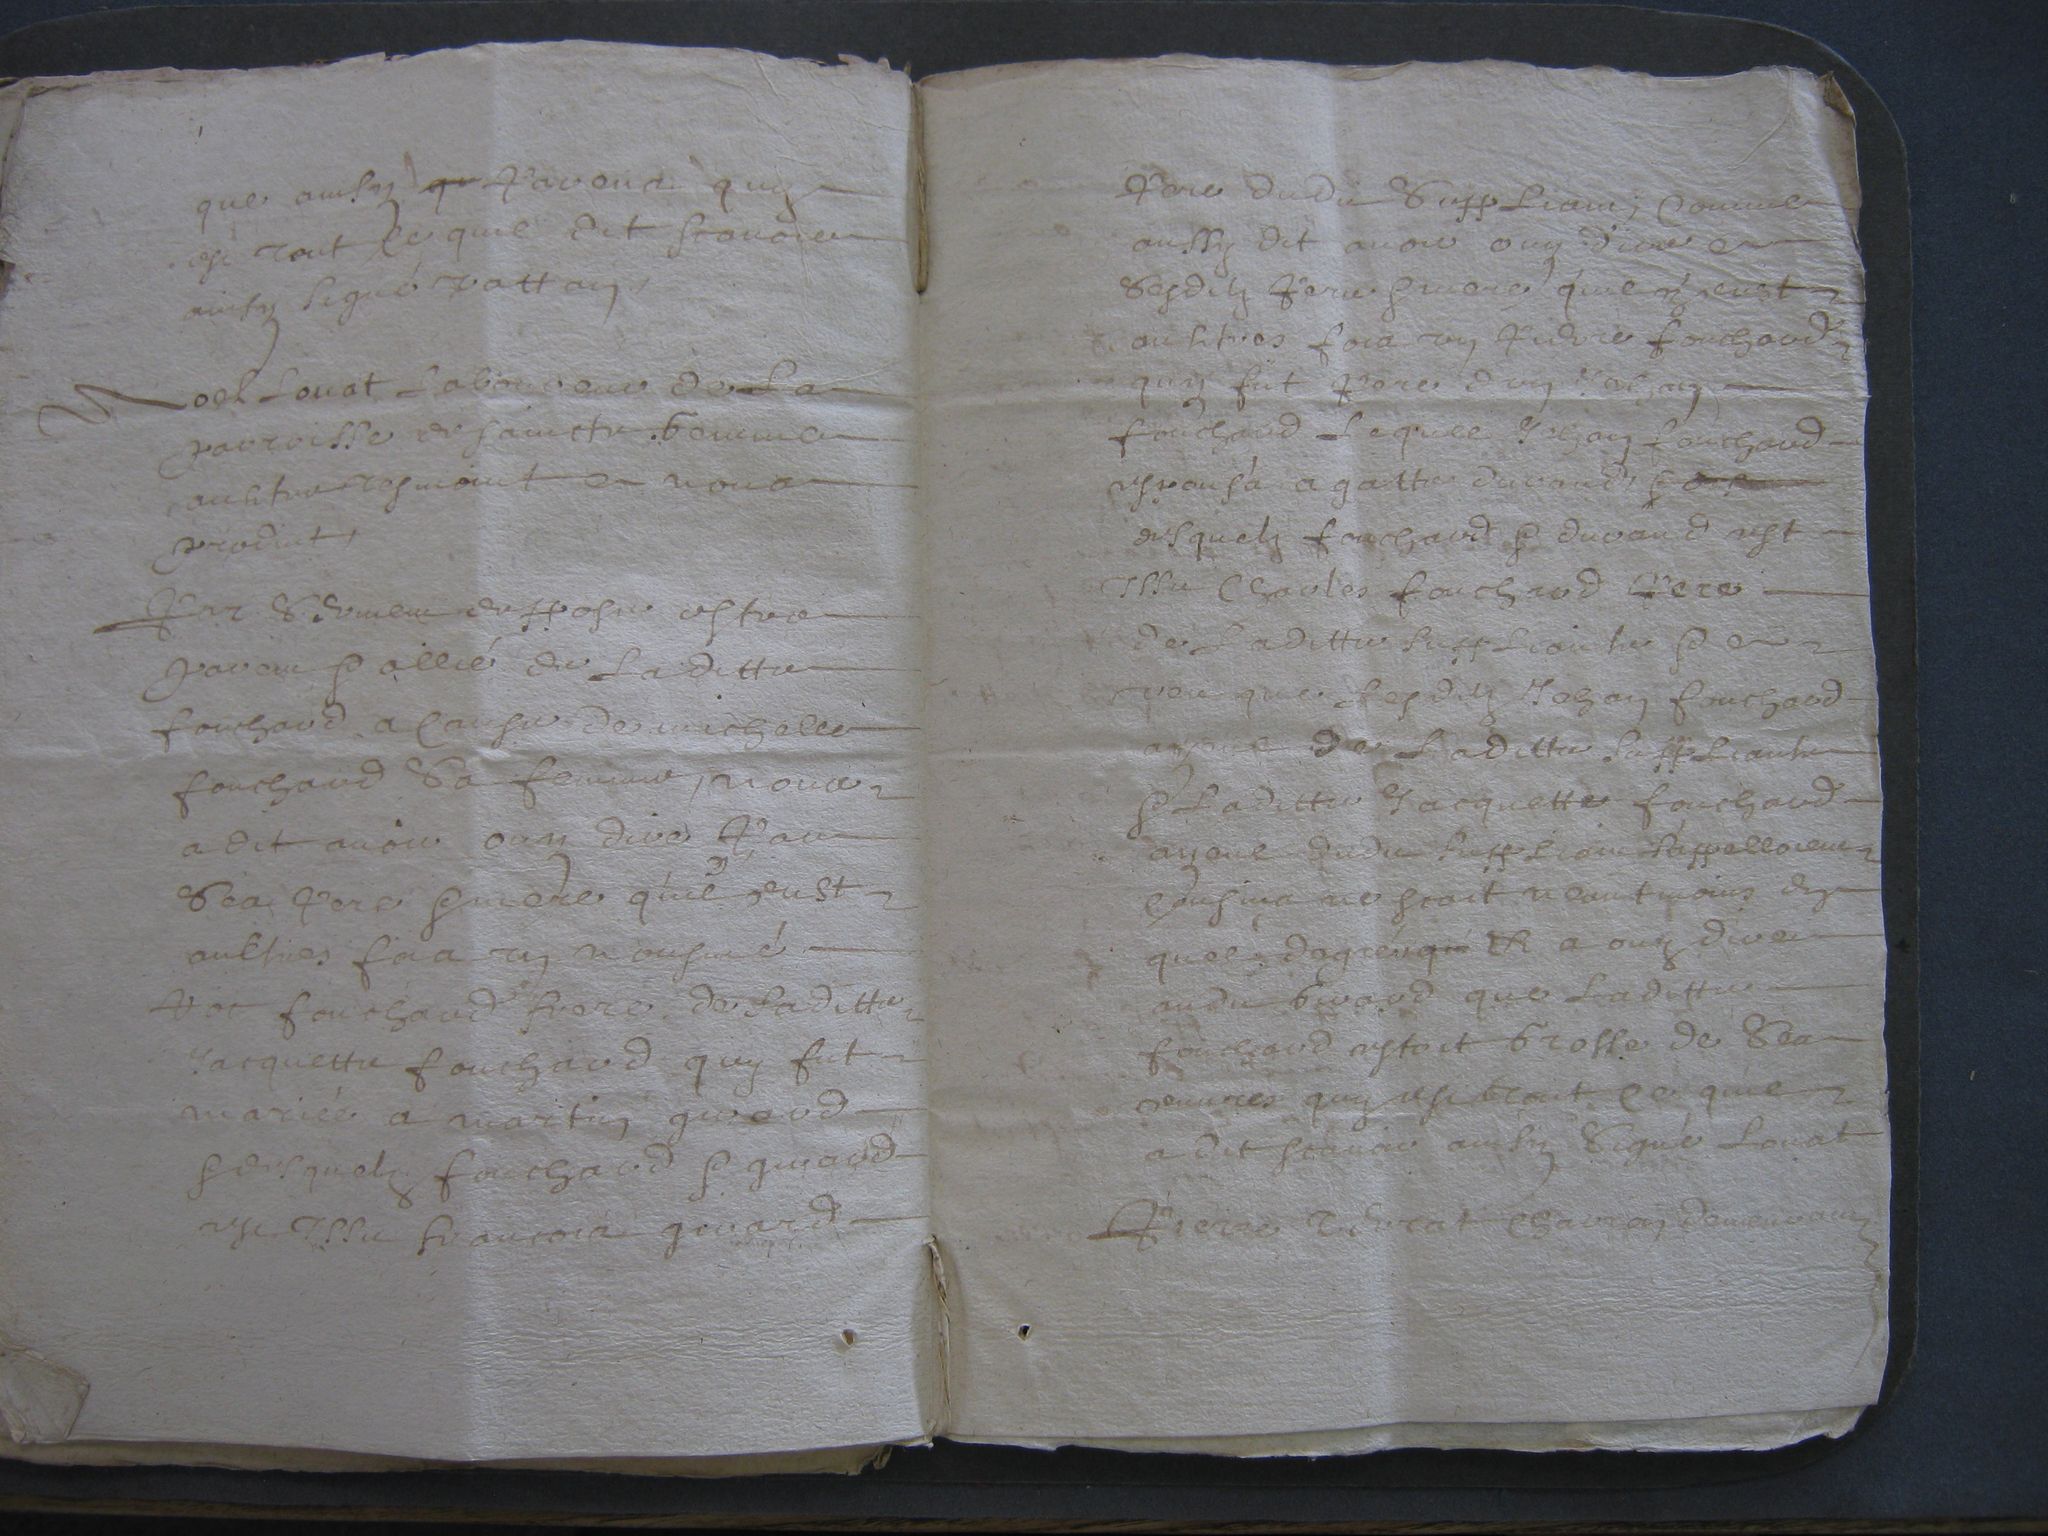 que ainsy qu parens quy
est tout ce quil dit scavoir
ainsy signé rattay
Noel Louat Laboureur de La
parroisse de saincte Gemme
aultre tesmoint a nous
produit,
Par Serment depposse estre
parent & allié de Laditte
fouchard a Cause de michelle
fouchard Sa femme, nous
a dit avoir ouy dire par
Ses Pere & mere quil y eust
aultres fois un nommé
fouchard frere de Laditte
Jacquette fouchard quy fut
mariée a martin girard
& desquels fouchard & girard
est Issu francois girard
Pere dudit Suppliant, Comme
aussy dit avoir ouy dire a
Sesdits Pere & mere quil y eust
aultres fois un Pierre fouchard
quy fut Pere d'un Jehan
fouchard Lequel Jehan fouchard
espousa agatte durand &
desquels fouchard & durand est
Issu Charles fouchard Pere
de Laditte suppliante & a
veu que Lesdits Jehan fouchard
ayeul de Laditte suppliante
& Laditte Jacquette fouchard
ayeul dudit suppliant s'appelloient
Cousins ne scait neantmoins de
quel degré qu & a ouy dire
audit Girard que Laditte
fouchard estoit Grosse de Ses
oeuvres quy est tout Ce quil
a dit scavoir ainsy Signé Louat
Pierre charon demeurant